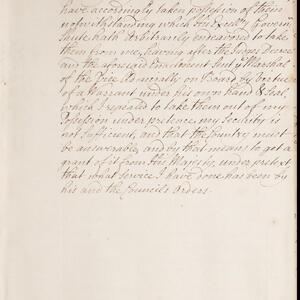 have accordingly taken possession of them
notwithstanding which His Excelly Govern
Shute hath Arbitrarily endeavored to take
them from me, having after the Judges Decree
and the aforesaid Enclosment Sent ye Marshal
of the Vice Admiralty on Board by vertue
of a Warrant under his own Hand & Seal,
which I repeated to take them out of my
Possession under pretence my Security is
not Sufficient, and that the Country must
be answerable, and by that means to get a
grant of it from His Majesty, under pretext
that what Service I have done has been by
his and the Councils Orders.